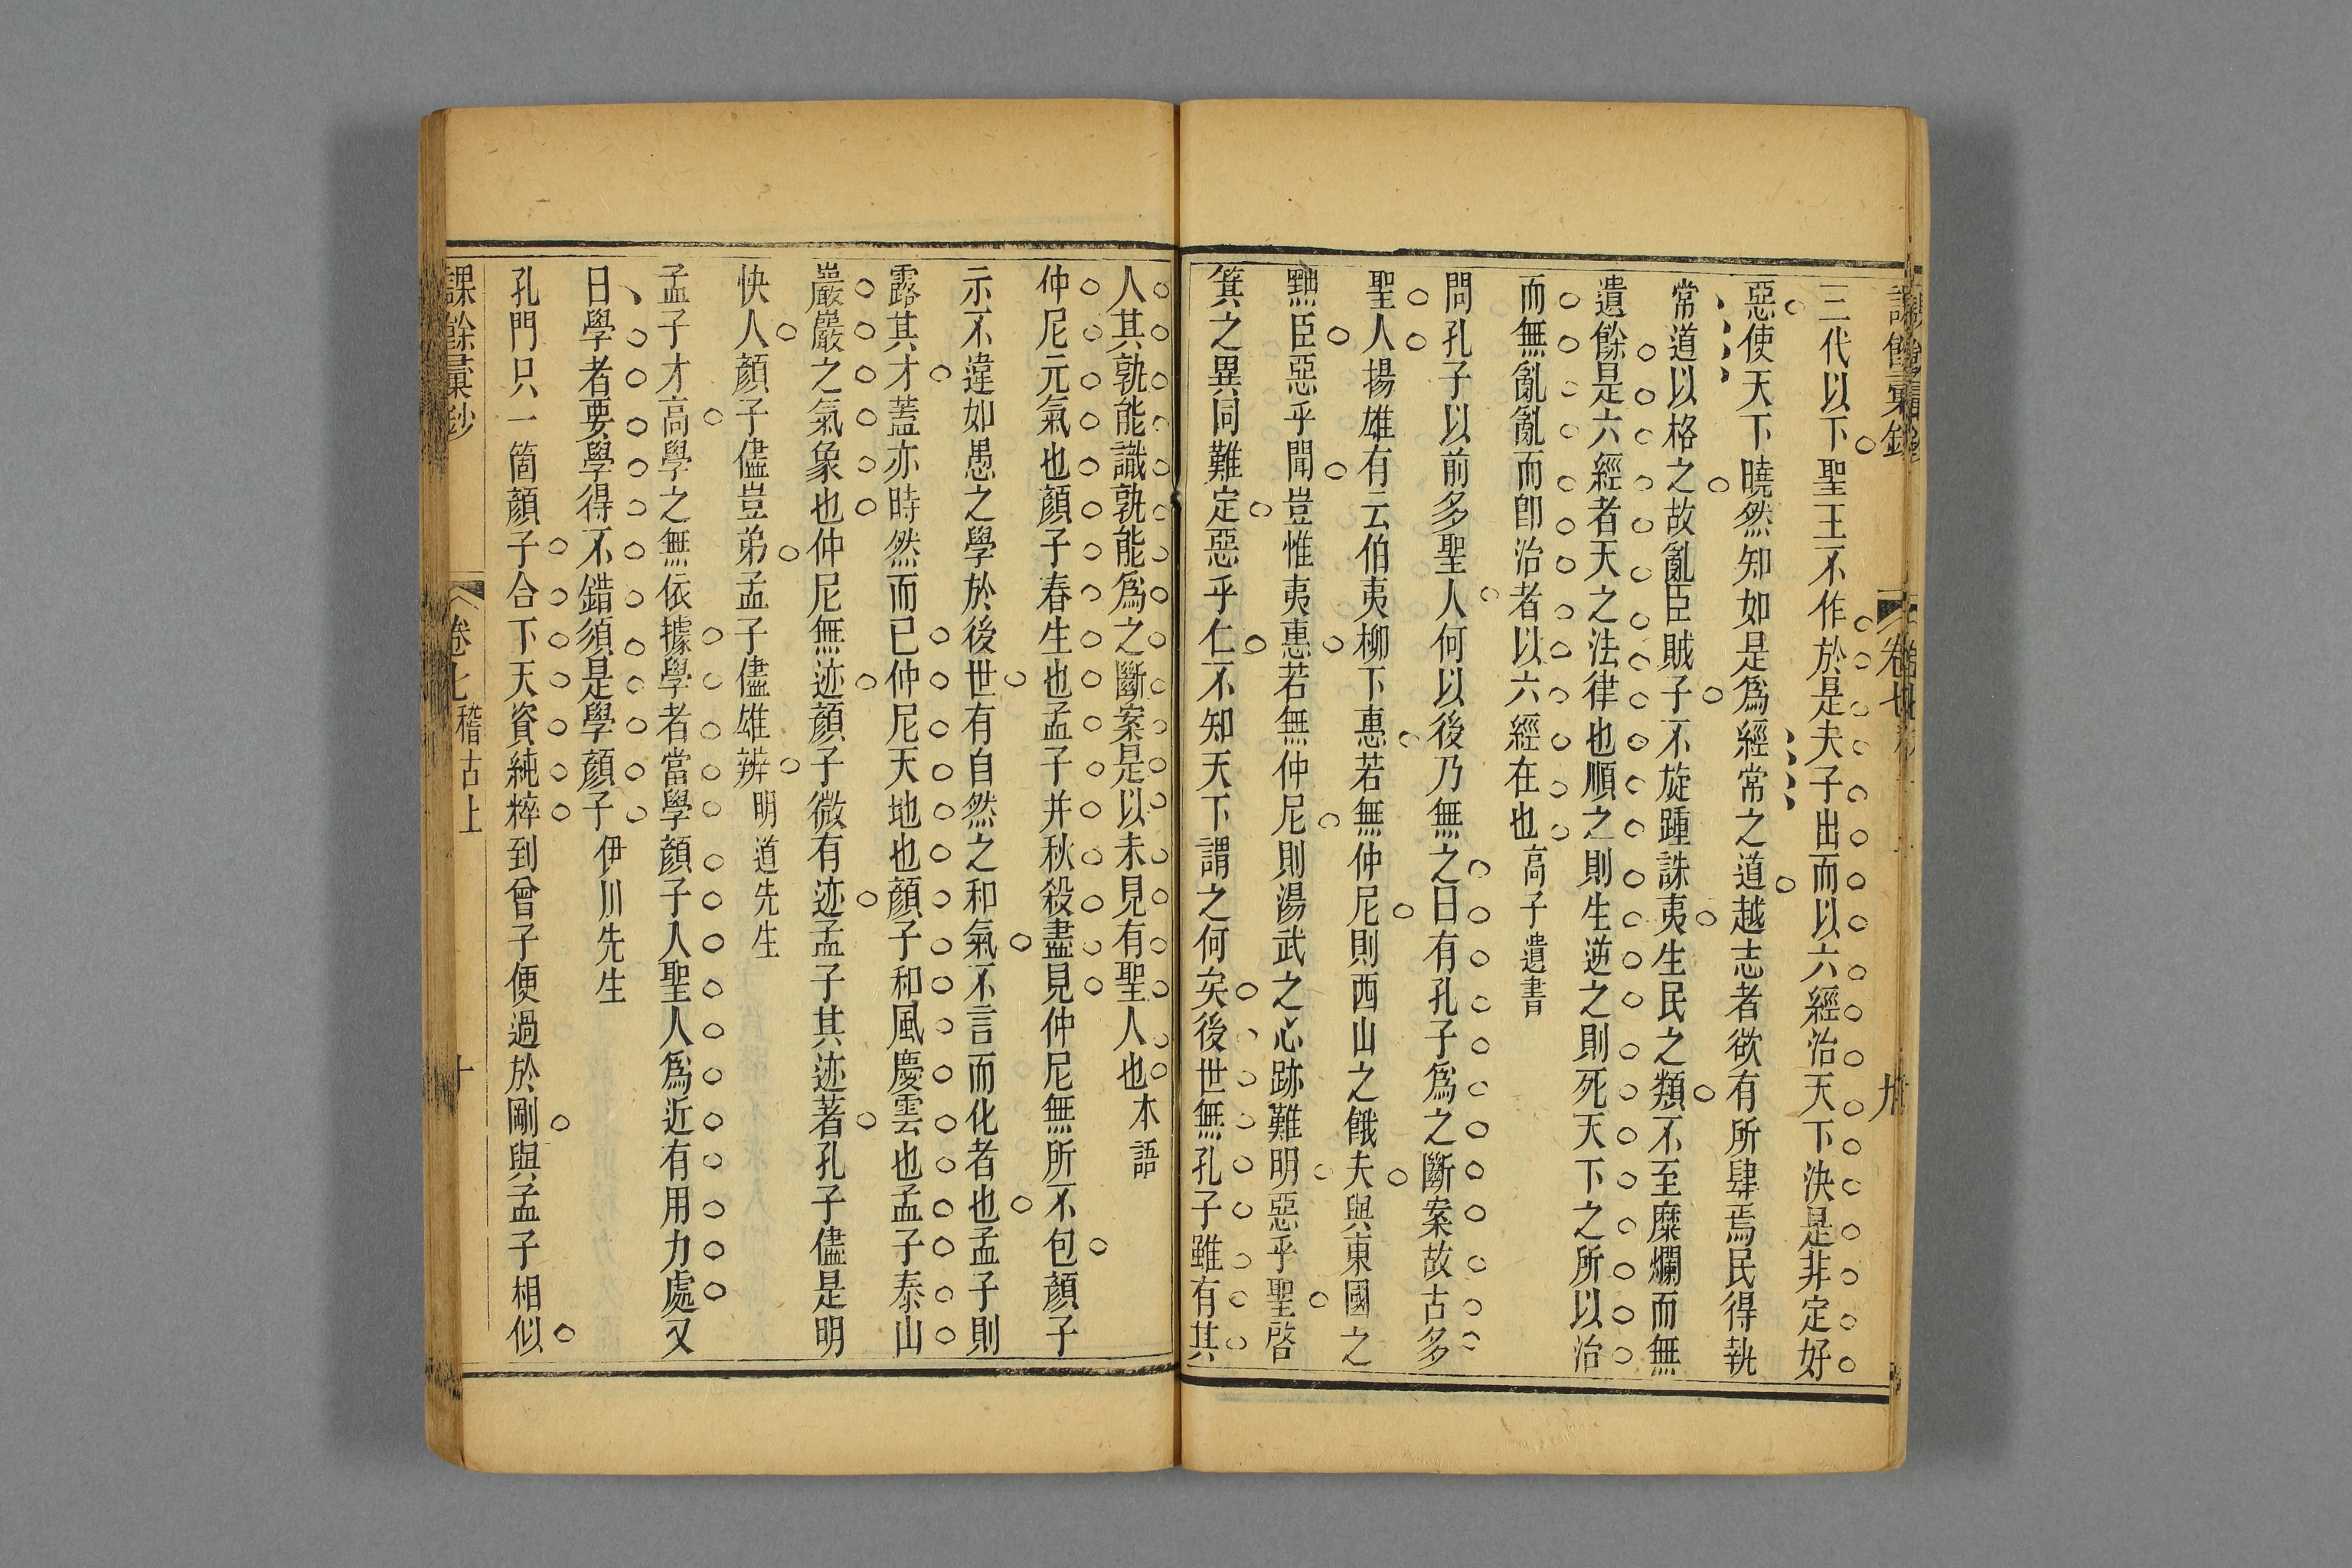 三代以下聖王不作於是夫子出而以六經治天下決是非定好
惡使天下曉然知如是爲經常之道越志者欲有所肆焉民得執
常道以格之故亂臣賊子不旋踵誅夷生民之類不至糜爛而無
遺餘是六經者天之法律也順之則生逆之則死天下之所以治
而無亂亂而卽治者以六經在也高子遺書
問孔子以前多聖人何以後乃無之曰有孔子爲之斷案故古多
聖人揚雄有云伯夷柳下惠若無仲尼則西山之餓夫與東國之
黜臣惡乎聞豈惟夷惠若無仲尼則湯武之心跡難明惡乎聖啓
箕之異同難定惡乎仁不知天下謂之何矣後世無孔子雖有其
人其孰能識孰能爲之斷案是以未見有聖人也木語
仲尼元氣也顏子春生也孟子并秋殺盡見仲尼無所不包顏子
示不違如愚之學於後世有自然之和氣不言而化者也孟子則
露其才蓋亦時然而已仲尼天地也顏子和風慶雲也孟子泰山
巖巖之氣象也仲尼無迹顏子微有迹孟子其迹著孔子儘是明
快人顏子儘豈弟孟子儘雄辨明道先生
孟子才高學之無依據學者當學顏子人聖人爲近有用力處又
曰學者要學得不錯須是學顏子伊川先生
孔門只一箇顏子合下天資純粹到曾子便過於剛與孟子相似
課餘彙鈔
卷七
稽古上
十